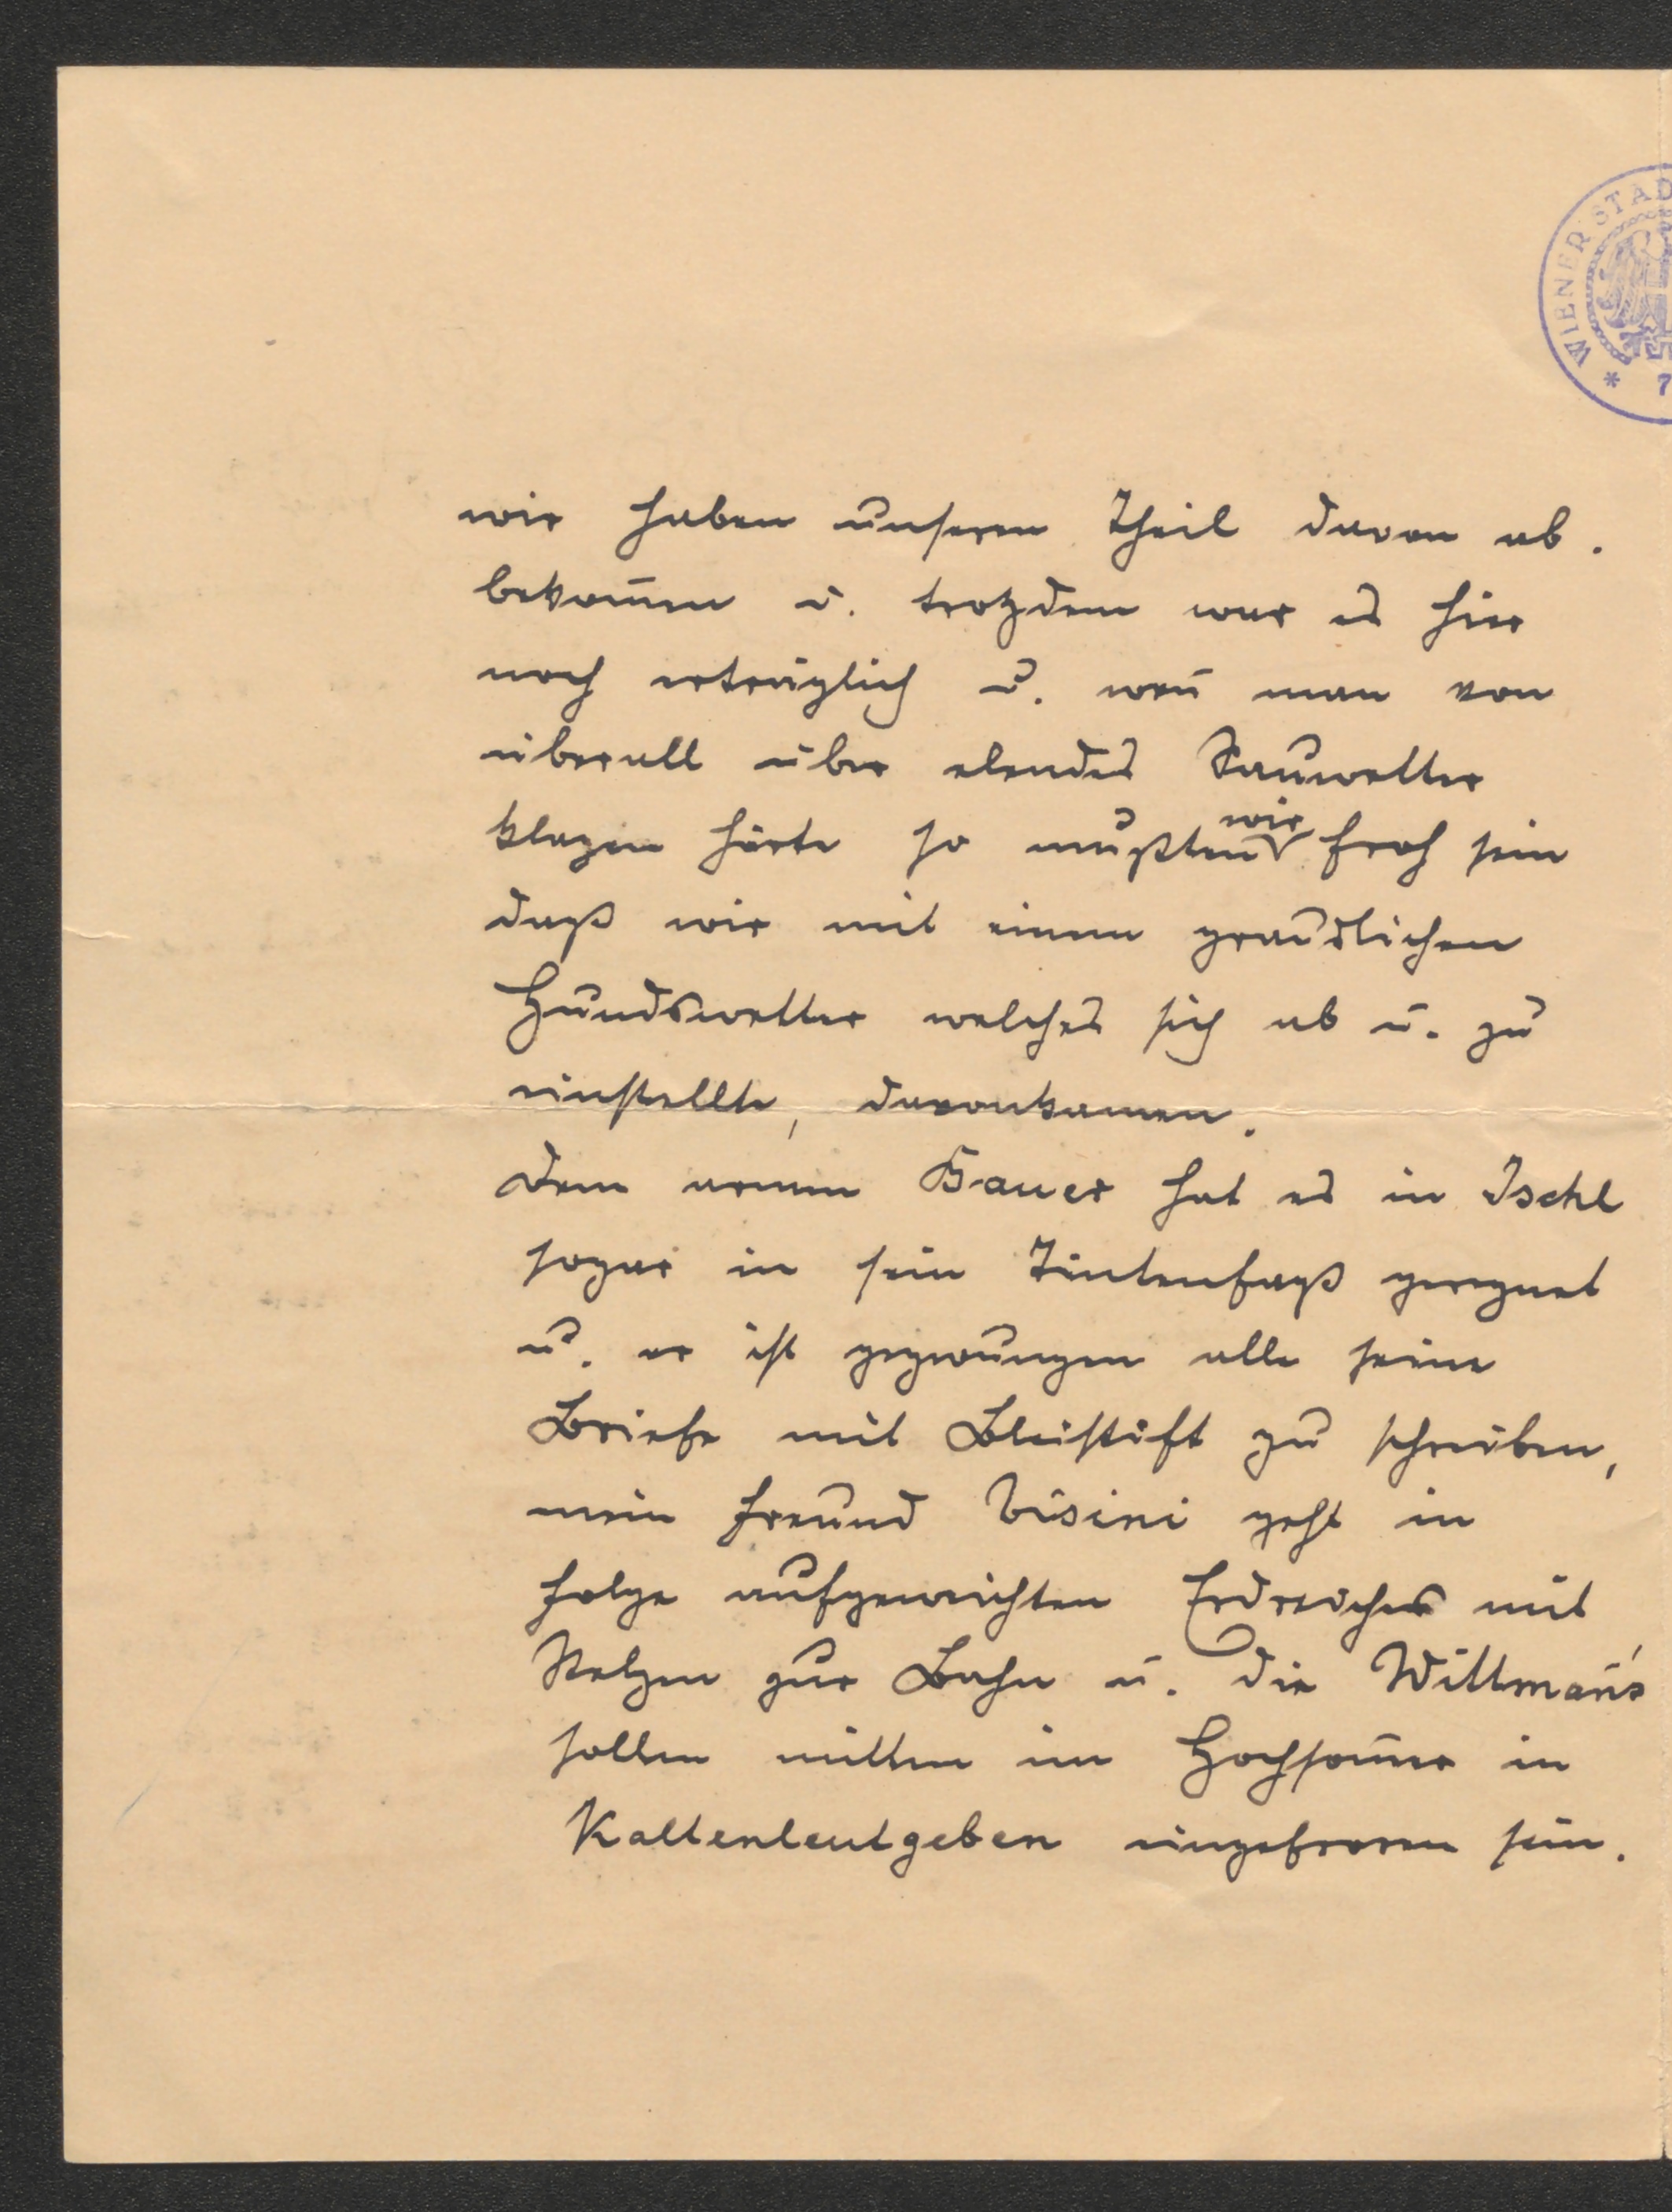 WIENER STAD
* 7
wir haben unseren Theil davon ab.
bekom̄en u. trotzdem war es hier
noch erträglich u. wen̄ man von
überall über elendes Sauwetter
klagen hörte so mußten wir froh sein
daß wir mit einem grauslichen
Hundswetter welches sich ab u. zu
einstellte, davonkamen.
Dem armen Bauer hat es in Ischl
sogar in sein Tintenfaß geregnet
u. er ist gezwungen alle seine
Briefe mit Bleistift zu schreiben,
mein Freund Visini geht in
Folge aufgeweichten Erdreiches mit
Stelzen zur Bahn u. die Wittman̄'s
sollen mitten im Hochsom̄er in
Kaltenleutgeben eingefroren sein.